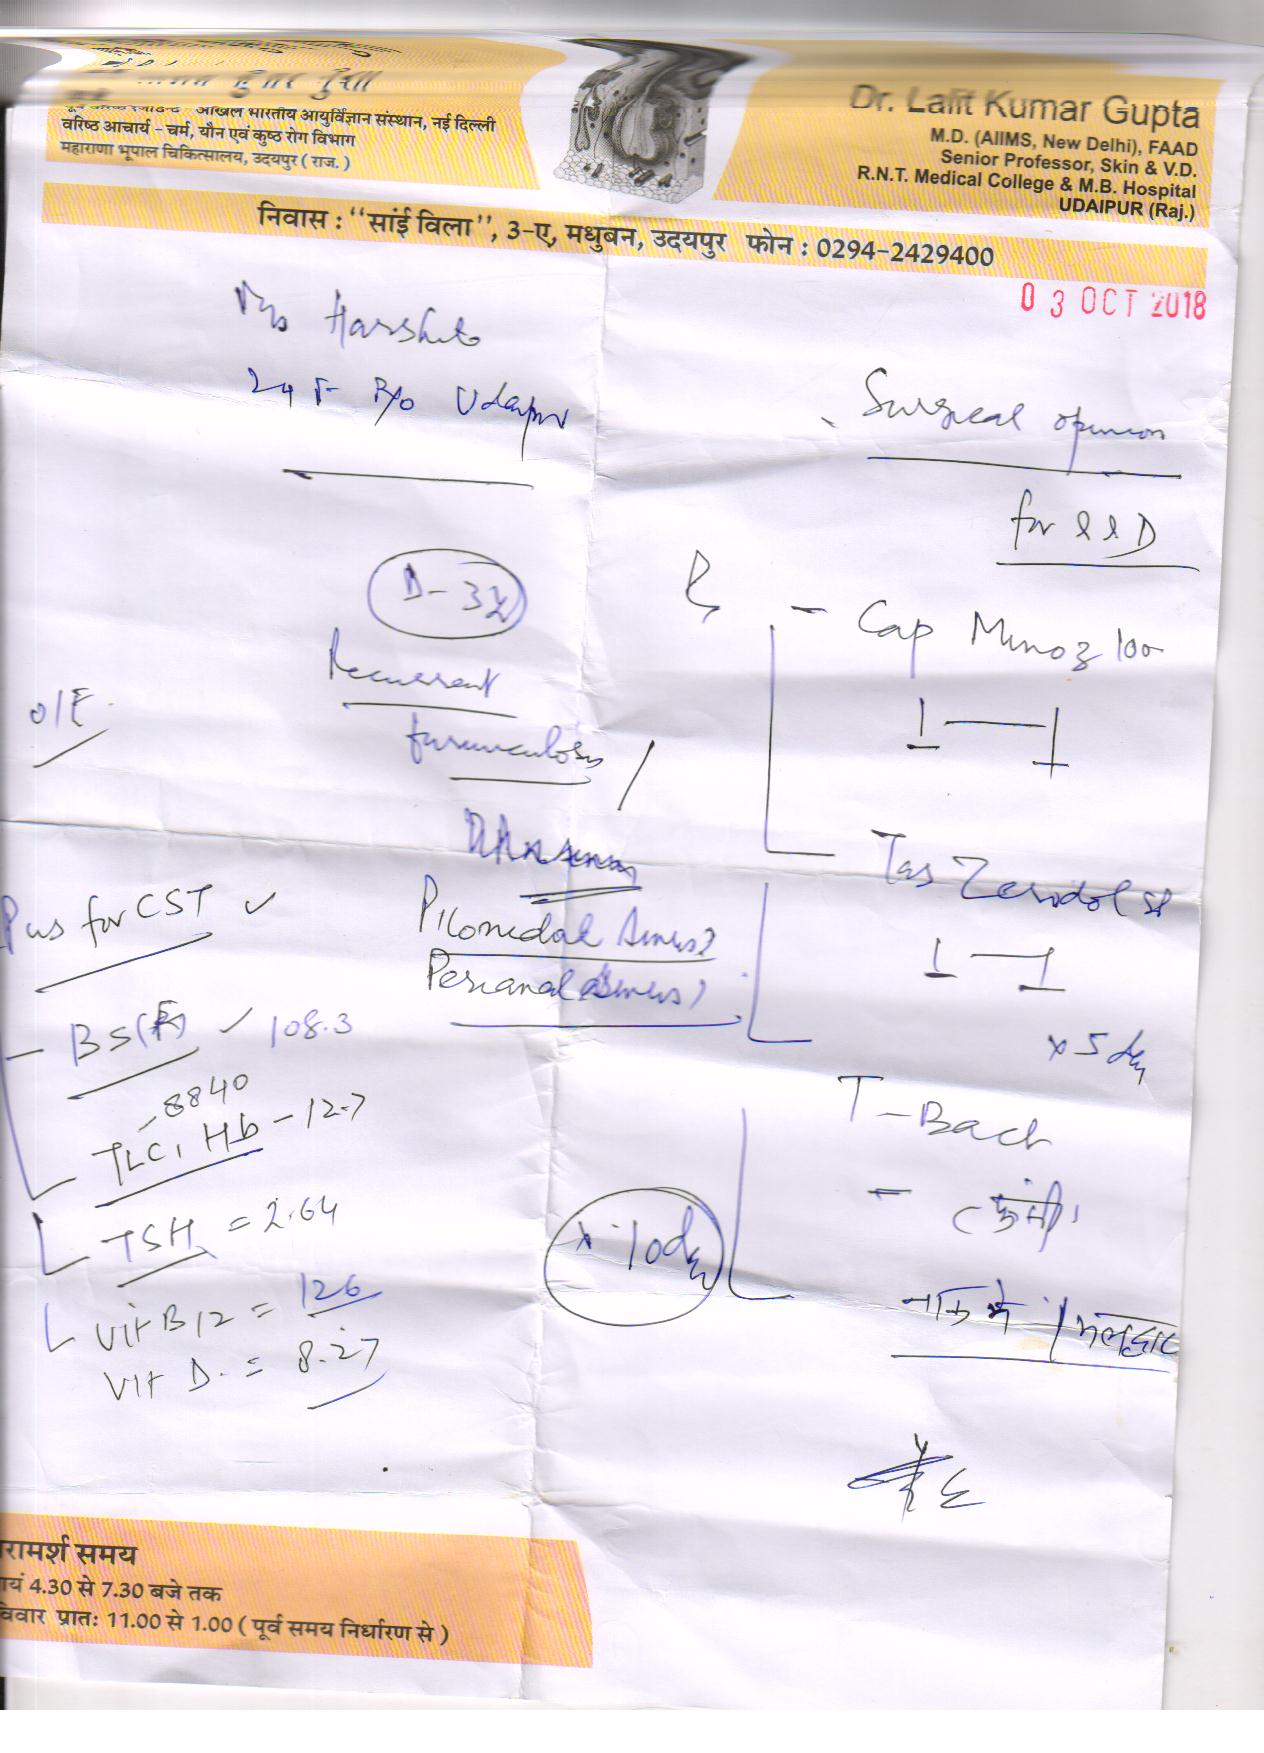 कुमार गुप्ता
अखिल भारतीय आयुर्विज्ञान संस्थान, नई दिल्ली
वरिष्ठ आचार्य - चर्म, यौन एवं कुष्ठ रोग विभाग
महाराणा भूपाल चिकित्सालय, उदयपुर ( राज. )
Dr. Lalit Kumar Gupta
M.D. (AIIMS, New Delhi), FAAD
Senior Professor, Skin & V.D.
R.N.T. Medical College & M.B. Hospital
UDAIPUR (Raj.)
निवास : "सांई विला", 3-ए, मधुबन, उदयपुर फोन : 0294-2429400
03 OCT 2018
Harshita
24 F R/o Udaipur
Surgical opinion
for I & D
Recurrent
furunculosis /
Pilonidal sinus?
Perianal sinus?
O/E
Pus for CST ✓
- BS(R) ✓ 108.3
- 8840
TLC, Hb - 12.7
TSH = 2.64
Vit B12 = 126
Vit D. = 8.27
- Cap Minoz 100
1 — 1
Tab Zerodol SP
1 — 1
x 5 day
T-Bact
x 10 day
नाक में / मलद्वार
रामर्श समय
यं 4.30 से 7.30 बजे तक
विवार प्रातः 11.00 से 1.00 ( पूर्व समय निर्धारण से )